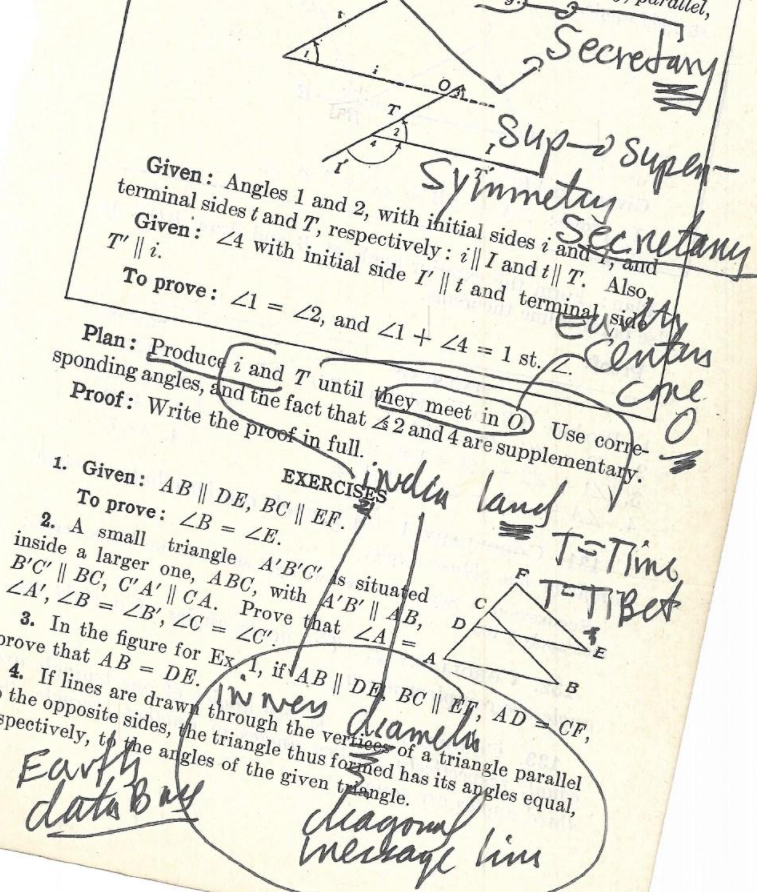 parallel,
Secretary
t
1
i
O
3
T
2
4
I
I'
T'
Sup → super-
Symmetry
Secretary
Given: Angles 1 and 2, with initial sides i and I, and
terminal sides t and T, respectively: i ∥ I and t ∥ T. Also,
Given: ∠4 with initial side I' ∥ t and terminal side
T' ∥ i.
To prove: ∠1 = ∠2, and ∠1 + ∠4 = 1 st. ∠.
Earth
Centers
cone
O
Plan: Produce i and T until they meet in O. Use corre-
sponding angles, and the fact that ∠s 2 and 4 are supplementary.
Proof: Write the proof in full.
EXERCISES
india land
1. Given: AB ∥ DE, BC ∥ EF.
To prove: ∠B = ∠E.
T=Time
T=TiBet
2. A small triangle A'B'C' is situated
inside a larger one, ABC, with A'B' ∥ AB,
B'C' ∥ BC, C'A' ∥ CA. Prove that ∠A =
∠A', ∠B = ∠B', ∠C = ∠C'.
F
C
D
E
A
B
3. In the figure for Ex. 1, if AB ∥ DE, BC ∥ EF, AD = CF,
prove that AB = DE.
inness
diameter
4. If lines are drawn through the vertices of a triangle parallel
to the opposite sides, the triangle thus formed has its angles equal,
respectively, to the angles of the given triangle.
Earth
data Base
diagonal
message line